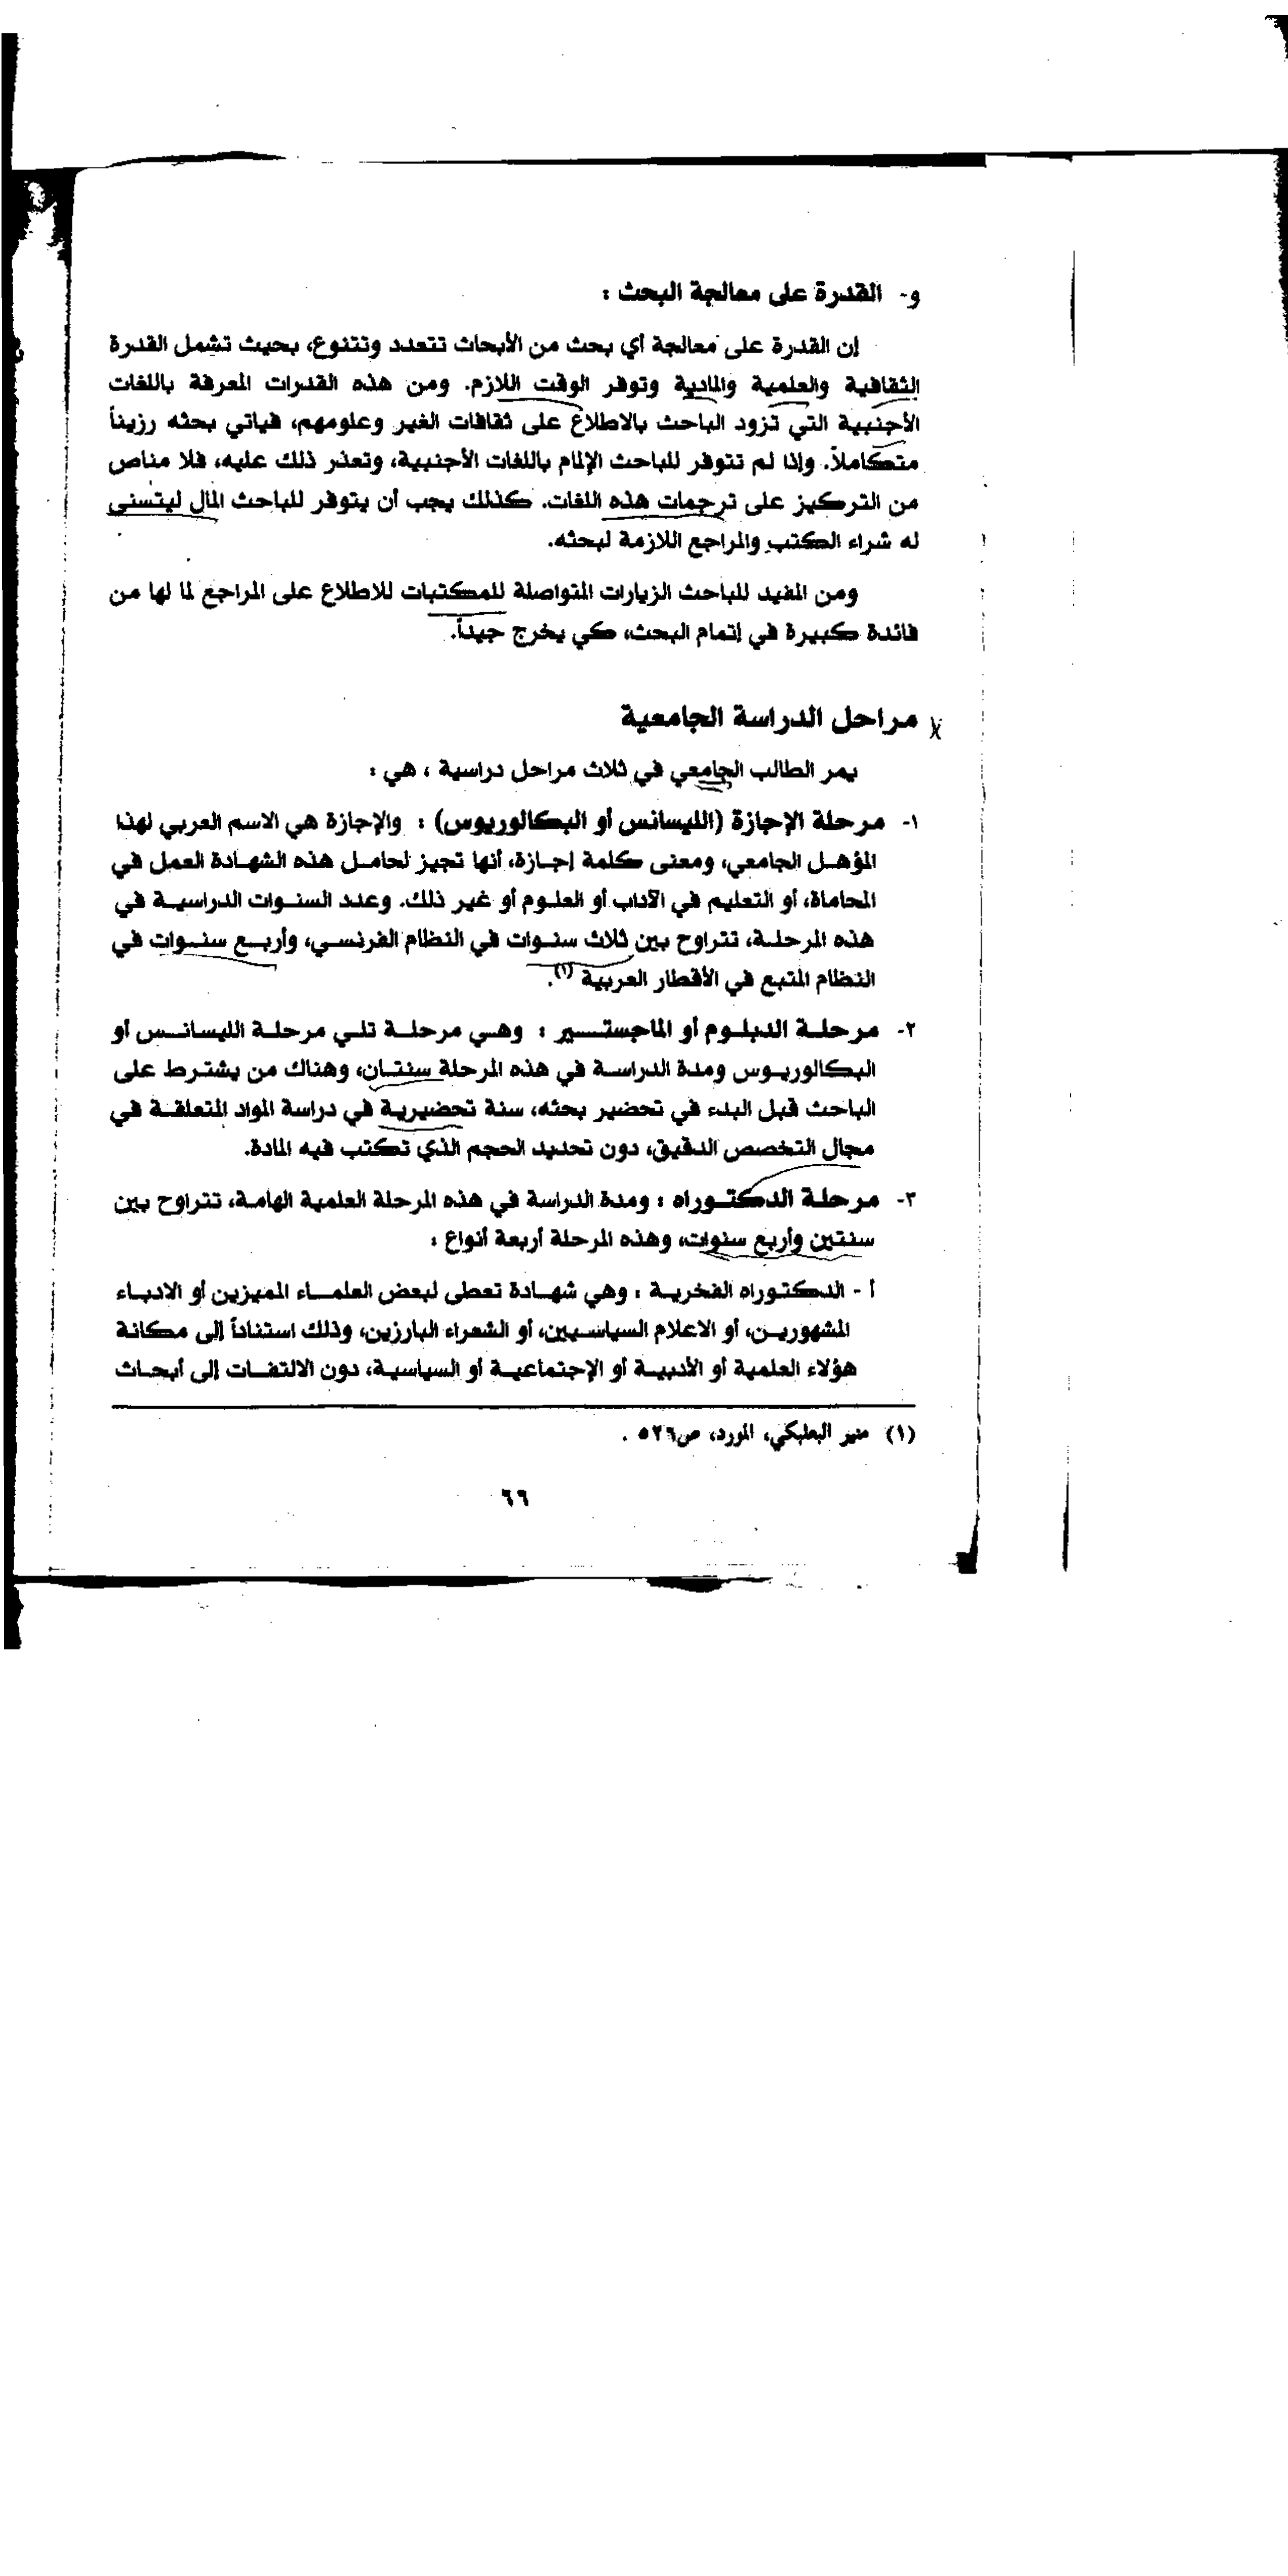 و- القدرة على معالجة البحث :
إن القدرة على معالجة أي بحث من الأبحاث تتعدد وتتنوع، بحيث تشمل القدرة
الثقافية والعلمية والمادية وتوفر الوقت اللازم. ومن هذه القدرات المعرفة باللغات
الأجنبية التي تزود الباحث بالاطلاع على ثقافات الغير وعلومهم، فياتي بحثه رزيناً
متكاملاً. وإذا لم تتوفر للباحث الإلمام باللغات الأجنبية، وتعذر ذلك عليه، فلا مناص
من التركيز على ترجمات هذه اللغات. كذلك يجب أن يتوفر للباحث المال ليتسنى
له شراء الكتب والمراجع اللازمة لبحثه.
ومن المفيد للباحث الزيارات المتواصلة للمكتبات للاطلاع على المراجع لما لها من
فائدة كبيرة في إتمام البحث، كي يخرج جيداً.
مراحل الدراسة الجامعية
يمر الطالب الجامعي في ثلاث مراحل دراسية ، هي :
١- مرحلة الإجازة (الليسانس أو البكالوريوس) : والإجازة هي الاسم العربي لهذا
المؤهل الجامعي، ومعنى كلمة إجازة، أنها تجيز لحامل هذه الشهادة العمل في
المحاماة، أو التعليم في الآداب أو العلوم أو غير ذلك. وعدد السنوات الدراسية في
هذه المرحلة، تتراوح بين ثلاث سنوات في النظام الفرنسي، وأربع سنوات في
النظام المتبع في الأقطار العربية (١).
٢- مرحلة الدبلوم أو الماجستير : وهي مرحلة تلي مرحلة الليسانس أو
البكالوريوس ومدة الدراسة في هذه المرحلة سنتان، وهناك من يشترط على
الباحث قبل البدء في تحضير بحثه، سنة تحضيرية في دراسة المواد المتعلقة في
مجال التخصص الدقيق، دون تحديد الحجم الذي تكتب فيه المادة.
٣- مرحلة الدكتوراه : ومدة الدراسة في هذه المرحلة العلمية الهامة، تتراوح بين
سنتين وأربع سنوات، وهذه المرحلة أربعة أنواع :
أ - الدكتوراه الفخرية : وهي شهادة تعطى لبعض العلماء المميزين أو الادباء
المشهورين، أو الاعلام السياسيين، أو الشعراء البارزين، وذلك استناداً إلى مكانة
هؤلاء العلمية أو الأدبية أو الإجتماعية أو السياسية، دون الالتفات إلى أبحاث
(١) منير البعلبكي، المورد، ص٥٢٦ .
٦٦